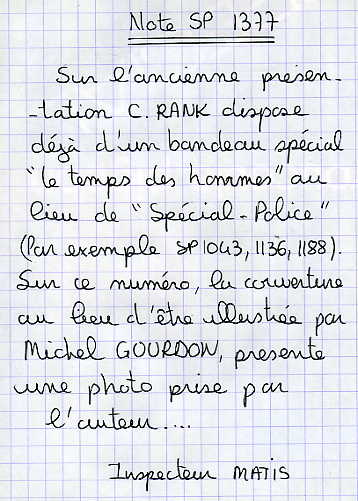 Note SP 1377
Sur l'ancienne présen-
-tation C. RANK dispose
déjà d'un bandeau spécial
"le temps des hommes" au
lieu de "Spécial-Police"
(Par exemple SP 1043, 1136, 1188).
Sur ce numéro, la couverture
au lieu d'être illustrée par
Michel GOURDON, présente
une photo prise par
l'auteur....
Inspecteur MATIS